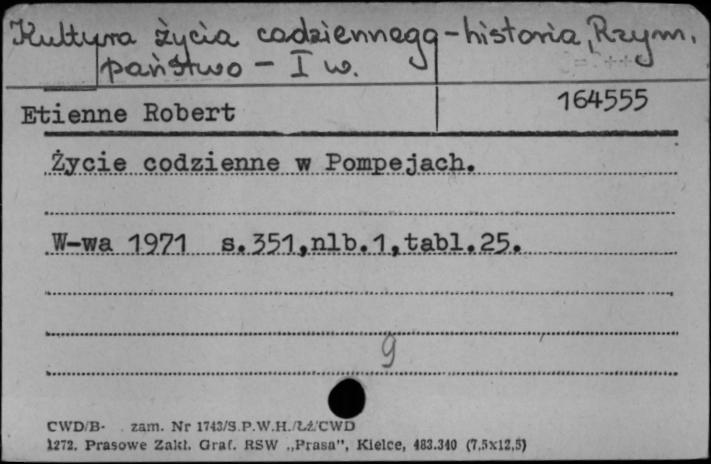 Kultura życia codziennego - historia, Rzym.
państwo - I w.
Etienne Robert 164555
Życie codzienne w Pompejach.
W-wa 1971 s.351,nlb.1,tabl.25.
9
CWD/B- zam. Nr 1743/S.P.W.H./ŁŻ/CWD
1272. Prasowe Zakł. Graf. RSW „Prasa", Kielce, 483.340 (7,5x12,5)